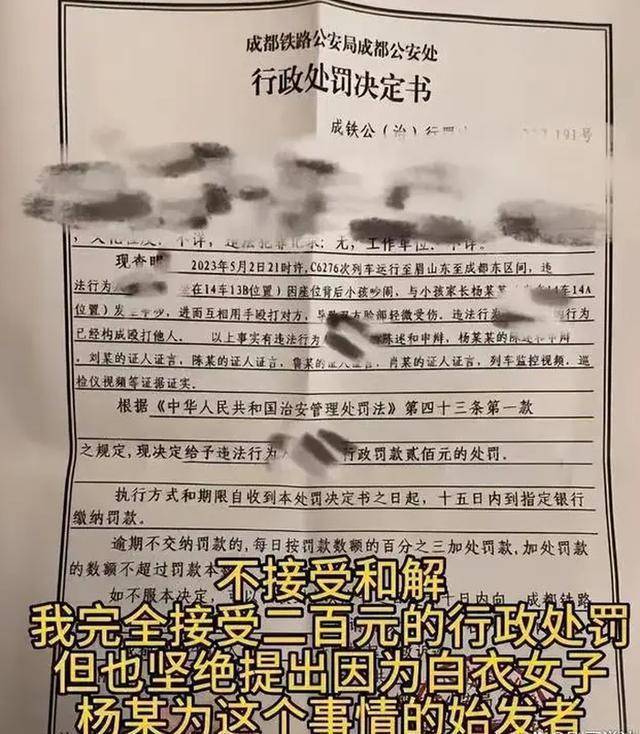 成都铁路公安局成都公安处
行政处罚决定书
成铁公（治）行罚 191号
不详，违法犯罪记录：无，工作单位：不详。
现查明 2023年5月2日21时许，C6276次列车运行至眉山东至成都东区间，违
法行为 在14车13B位置）因座位背后小孩吵闹，与小孩家长杨某某 14车14A
位置）发生争吵，进而互相用手殴打对方，导致双方脸部轻微受伤。违法行为 的行为
已经构成殴打他人。 以上事实有违法行为 陈述和申辩，杨某某的陈述和申辩，
刘某的证人证言，陈某的证人证言，鲁某的证人证言，肖某的证人证言，列车监控视频，巡
检仪视频等证据证实。
根据《中华人民共和国治安管理处罚法》第四十三条第一款
之规定，现决定给予违法行为人 行政罚款贰佰元的处罚.
执行方式和期限自收到本处罚决定书之日起，十五日内到指定银行
缴纳罚款。
逾期不交纳罚款的，每日按罚款数额的百分之三加处罚款，加处罚款
的数额不超过罚款本
如不服本决定，可以 十日内向 成都铁路
不接受和解
我完全接受二百元的行政处罚
但也坚绝提出因为白衣女子
杨某为这个事情的始发者